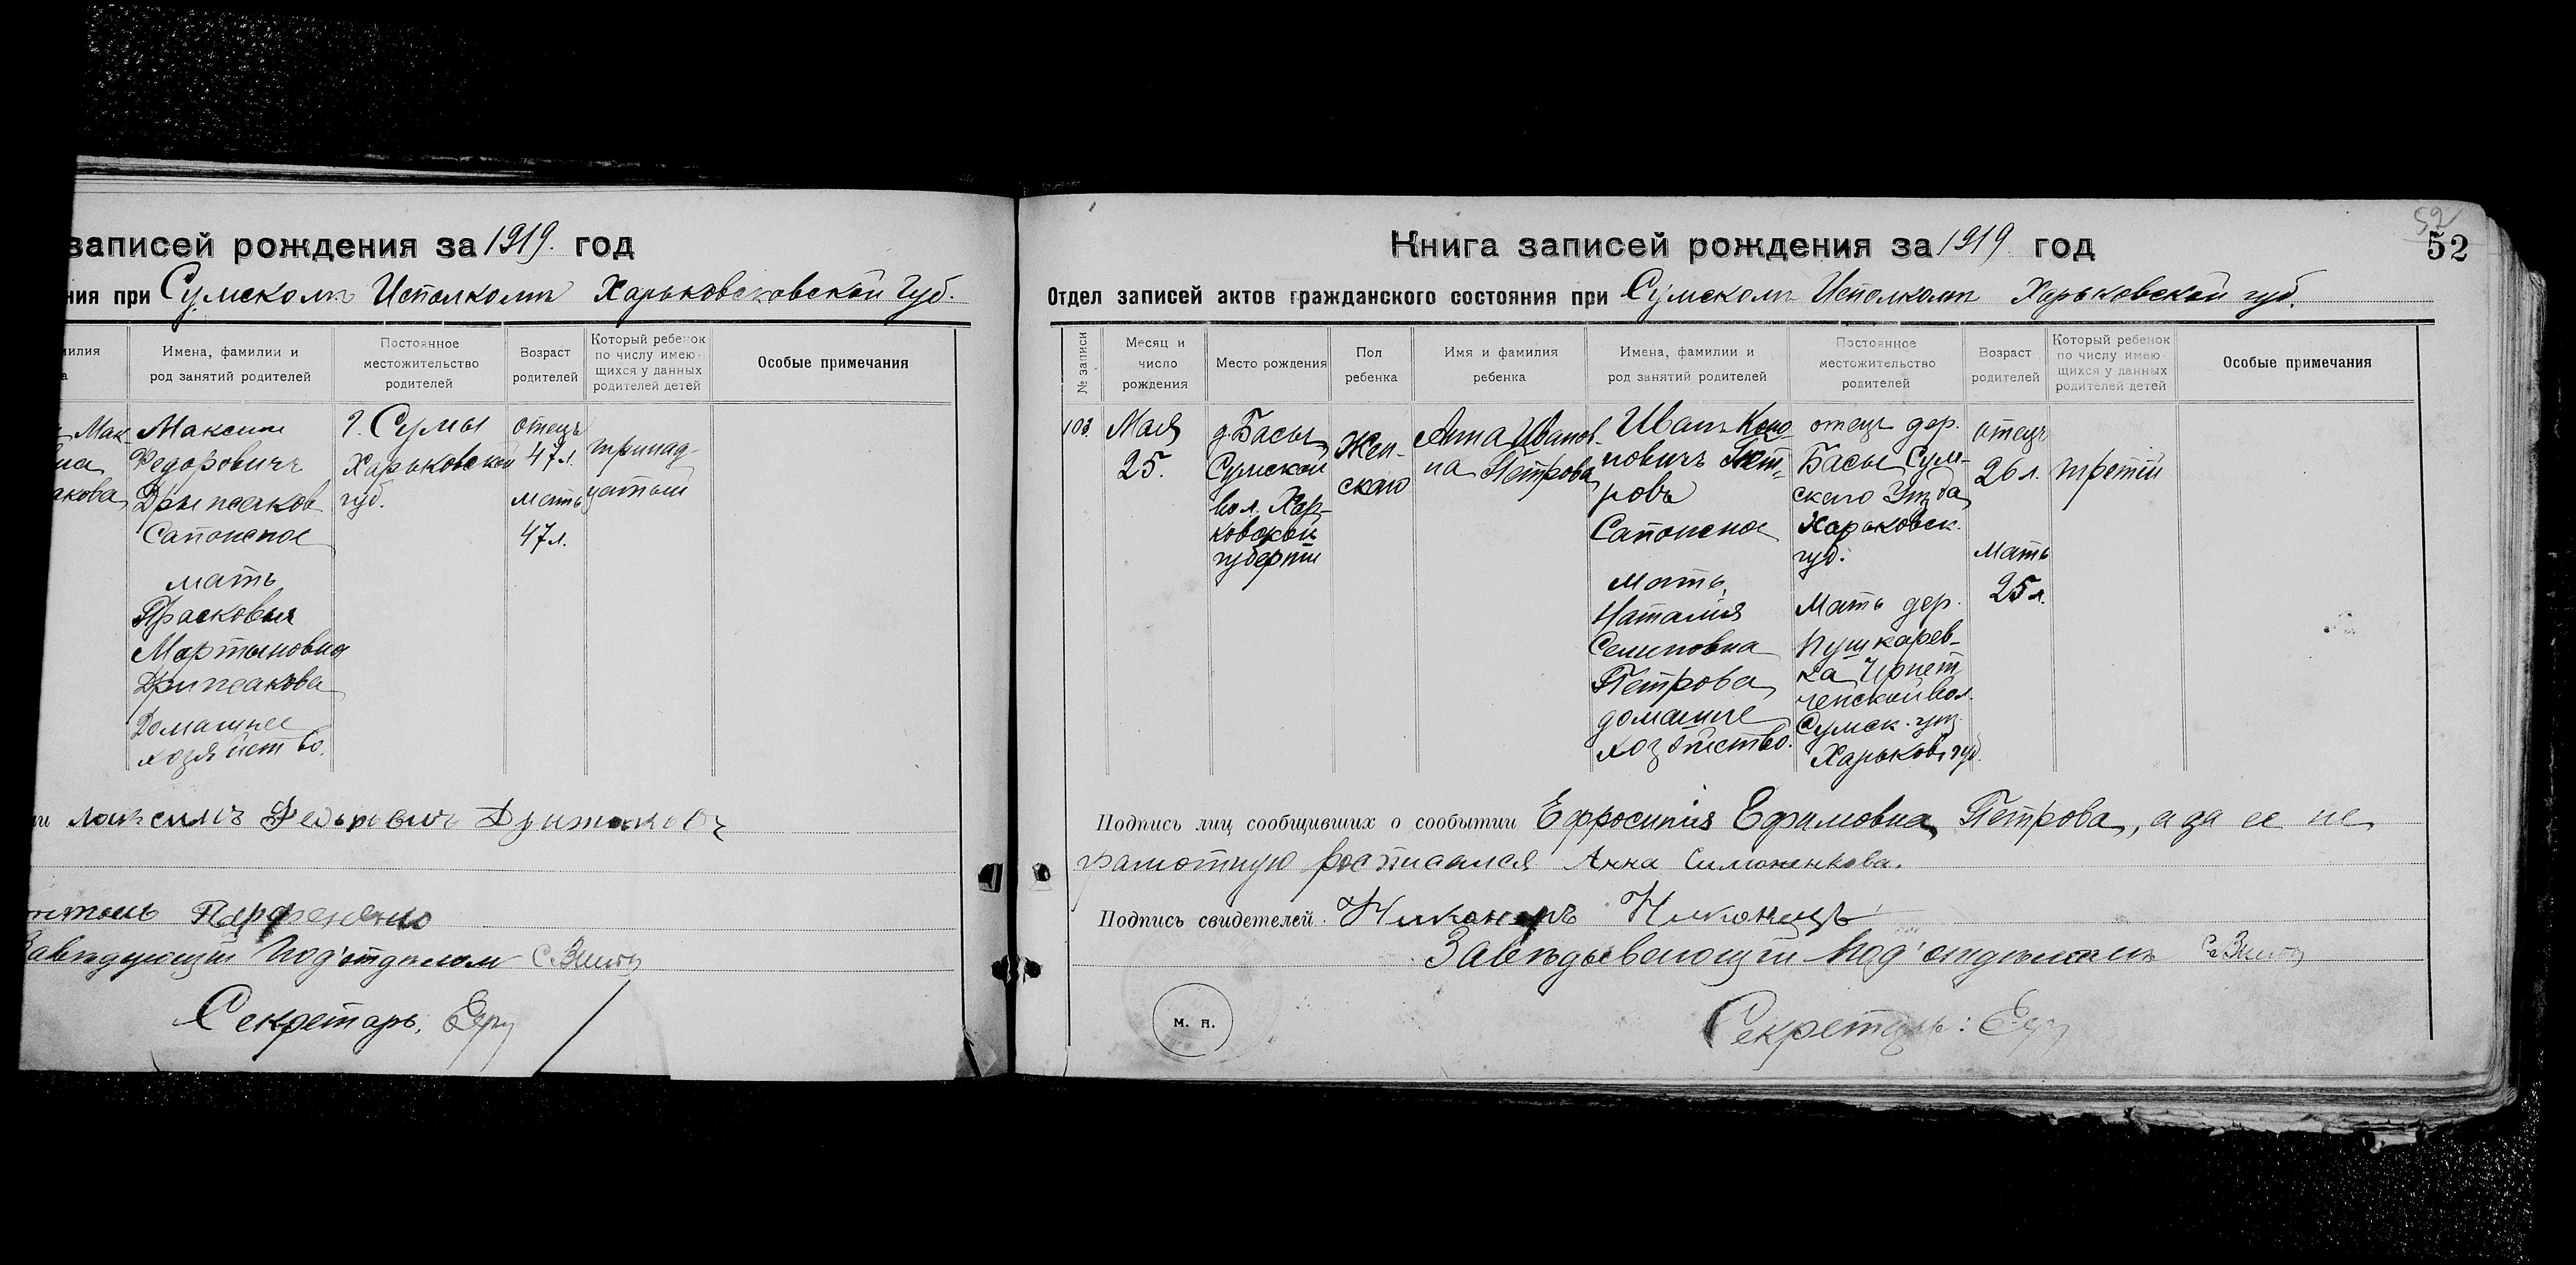 записей рождения за 1919. год
ния при Сумском Исполкоме Харьковсковской Губ.
милия
а
Имена, фамилии и
род занятий родителей
Постоянное
местожительство
родителей
Возраст
родителей
Который ребенок
по числу имею-
щихся у данных
родителей детей
Особые примечания
Мак-
на
акова
Максим
Федоровичъ
Дрижаков
Сапожное
мать
Прасковья
Мартыновна
Дрижакова
Домашнее
хозяйство.
г. Сумы
Харьковской
губ.
отецъ
47 л.
мать
47 л.
тринад-
цатый
Максимъ Федоровичъ Дрижаковъ
Завъдующий Под'отделом
Секретарь.
52
Книга записей рождения за 1919 год
52
Отдел записей актов гражданского состояния при Сумском Исполкоме Харьковской губ.
№ записи
Месяц и
число
рождения
Место рождения
Пол
ребенка
Имя и фамилия
ребенка
Имена, фамилии и
род занятий родителей
Постоянное
местожительство
родителей
Возраст
родителей
Который ребенок
по числу имею-
щихся у данных
родителей детей
Особые примечания
103.
Мая
25.
д. Басы
Сумской
вол. Харь-
ковской
губернии
Жен-
скаго
Анна Иванов-
на Петрова
Иванъ Коно-
новичъ Пет-
ровъ
Сапожное
мать
Наталия
Семеновна
Петрова
домашне
хозяйство.
отецъ дер.
Басы Сум-
скаго Уезда
Харьковск.
губ.
Мать дер.
Пушкарев-
ка
вол.
Сумск. уез.
Харьков. губ.
отецъ
26 л.
Мать
25 л.
третий
Подпись лиц сообщивших о сообытии Ефросиния Ефимовна Петрова, а за ее не
грамотную росписался Анна Симоненкова.
Подпись свидетелей. Никаноръ
Завъдывающий Под'отделом
м. п.
Секретарь: